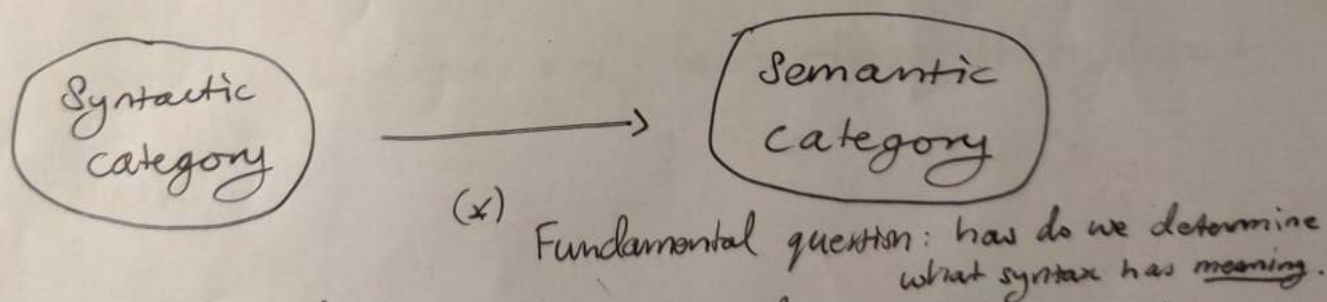 Syntactic
category
Semantic
category
(x)
Fundamental question: how do we determine
what syntax has meaning.